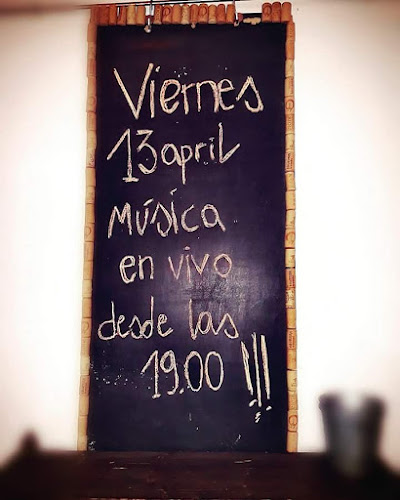 Viernes
13 april
Música
en vivo
desde las
19.00 !!!